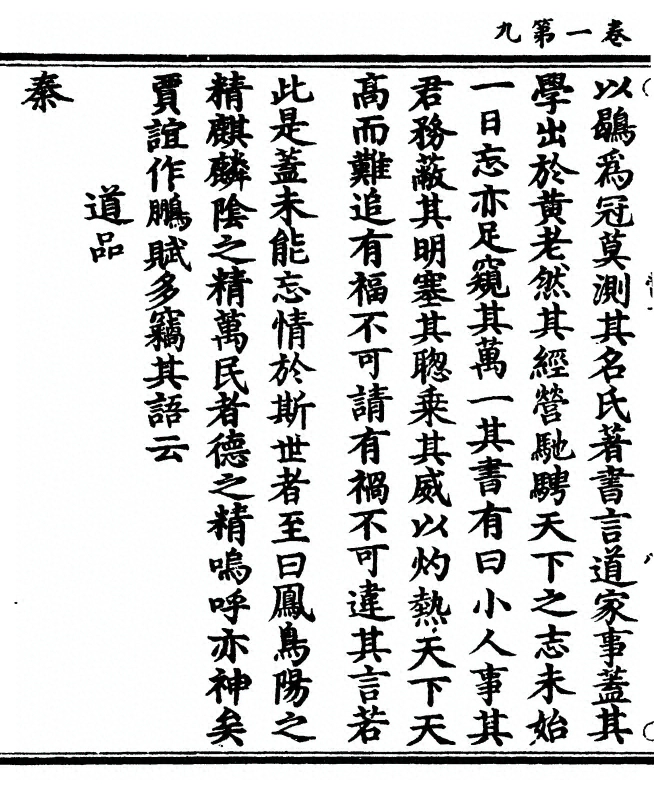 卷一第九
以鶡爲冠莫測其名氏著書言道家事蓋其
學出於黃老然其經營馳騁天下之志未始
一日忘亦足窺其萬一其書有曰小人事其
君務蔽其明塞其聰乗其威以灼熱天下天
高而難追有福不可請有禍不可違其言若
此是蓋未能忘情於斯世者至曰鳳鳥陽之
精麒麟陰之精萬民者德之精嗚呼亦神矣
賈誼作鵬賦多竊其語云
道品
秦